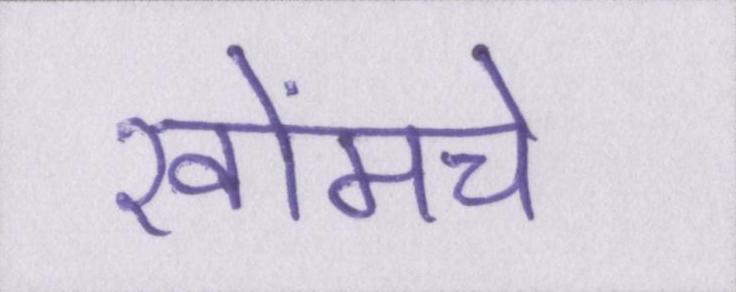 खोंमचे